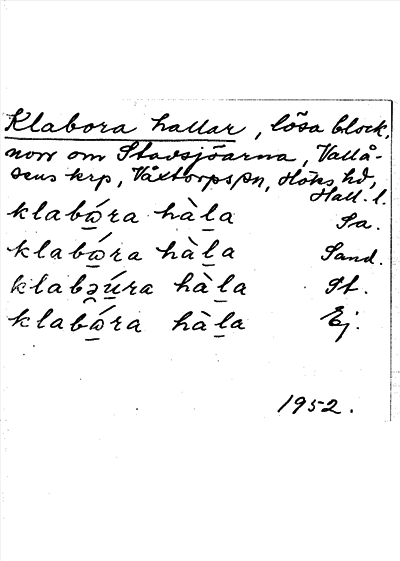 Klabora hallar, lösa block,
norr om Stavsjöarna, Vallå-
sens krp, Våxtorps sn, Höks hd,
Hall. l.
klabώ̲ra hàl̲a Sa.
klabώ̲ra hàl̲a Sand.
klabə̯ú̲ra hàl̲a St.
klabώ̲ra hàl̲a Ej.
1952.